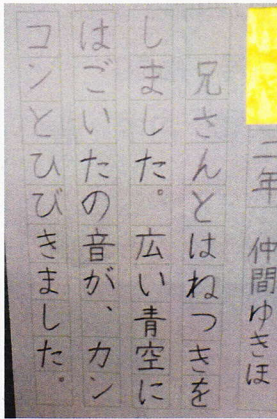 二年 仲間ゆきほ
兄さんとはねつきを
しました。広い青空に
はごいたの音が、カン
コンとひびきました。